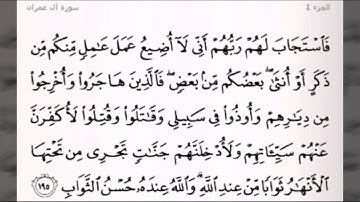 الجزء ٤ سورة آل عمران
فَاسْتَجَابَ لَهُمْ رَبُّهُمْ أَنِّي لَا أُضِيعُ عَمَلَ عَامِلٍ مِّنكُم مِّن
ذَكَرٍ أَوْ أُنثَىٰ بَعْضُكُم مِّن بَعْضٍ فَالَّذِينَ هَاجَرُوا وَأُخْرِجُوا
مِن دِيَارِهِمْ وَأُوذُوا فِي سَبِيلِي وَقَاتَلُوا وَقُتِلُوا لَأُكَفِّرَنَّ
عَنْهُمْ سَيِّئَاتِهِمْ وَلَأُدْخِلَنَّهُمْ جَنَّاتٍ تَجْرِي مِن تَحْتِهَا
الْأَنْهَارُ ثَوَابًا مِّنْ عِندِ اللَّهِ ۗ وَاللَّهُ عِندَهُ حُسْنُ الثَّوَابِ ١٩٥